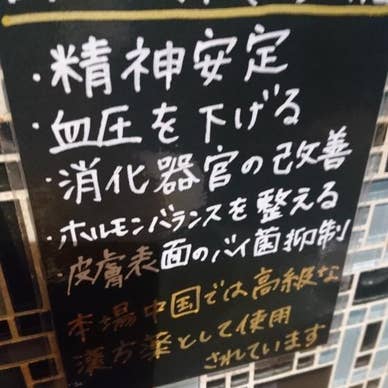 ・精神安定
・血圧を下げる
・消化器官の改善
・ホルモンバランスを整える
・皮膚表面のバイ菌抑制
本場中国では高級な
漢方薬として使用
されています